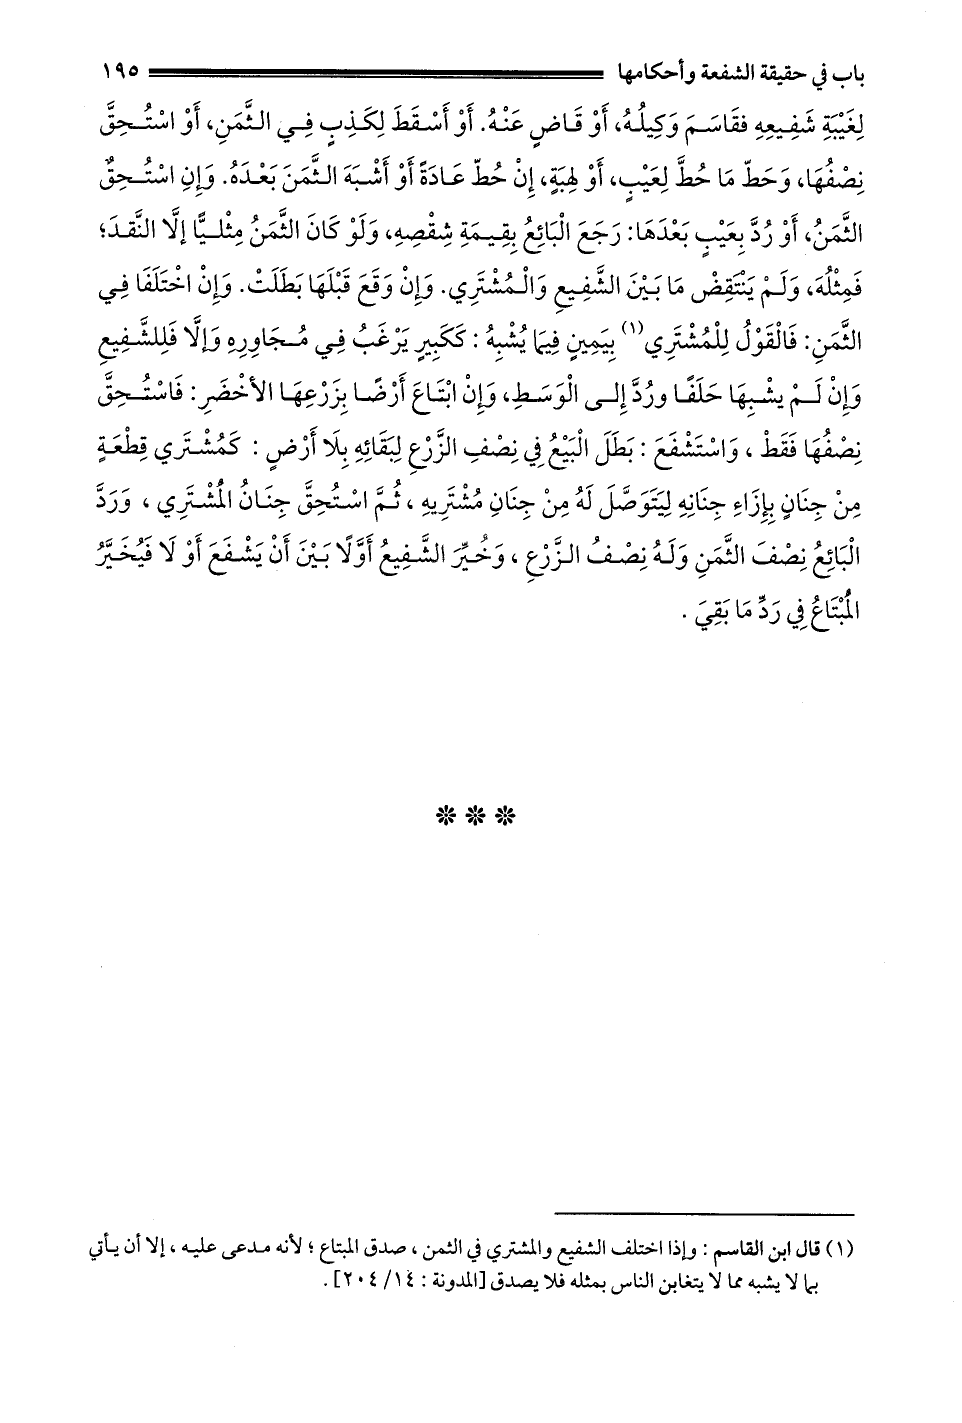 باب في حقيقة الشفعة وأحكامها ١٩٥
لِغَيْبَةِ شَفِيعِهِ فقَاسَمَ وَكِيلُهُ، أَوْ قَاضٍ عَنْهُ. أَوْ أَسْقَطَ لِكَذِبٍ فِي الثَّمَنِ، أَوْ اسْتُحِقَّ
نِصْفُهَا، وَحَطّ مَا حُطَّ لِعَيْبٍ، أَوْ لهِبَةٍ، إِنْ حُطّ عَادَةً أَوْ أَشْبَهَ الثَّمَنَ بَعْدَهُ. وَإِنِ اسْتُحِقَّ
الثَّمَنُ، أَوْ رُدَّ بِعَيْبٍ بَعْدَهَا: رَجَعَ الْبَائِعُ بِقِيمَةِ شِقْصِهِ، وَلَوْ كَانَ الثَّمَنُ مِثْلِيًّا إلَّا النَّقدَ؛
فَمِثْلُهُ، وَلَمْ يَنْتَقِضْ مَا بَيْنَ الشَّفِيعِ وَالْمُشْتَرِي. وَإِنْ وَقَعَ قَبْلَهَا بَطَلَتْ. وَإِنْ اخْتَلَفَا فِي
الثَّمَنِ: فَالْقَوْلُ لِلْمُشْتَرِي(١) بِيَمِينٍ فِيمَا يُشْبِهُ: كَكَبِيرٍ يَرْغَبُ فِي مُجَاوِرِهِ وَإلَّا فَلِلشَّفِيعِ
وَإِنْ لَمْ يشْبِهَا حَلَفَا ورُدَّ إِلى الْوَسَطِ، وَإِنْ ابْتَاعَ أَرْضًا بِزَرْعِهَا الأَخْضَرِ: فَاسْتُحِقَّ
نِصْفُهَا فَقَطْ، وَاسْتَشْفَعَ: بَطَلَ الْبَيْعُ فِي نِصْفِ الزَّرْعِ لِبَقَائِهِ بِلَا أَرْضٍ: كَمُشْتَرِي قِطْعَةٍ
مِنْ جِنَانٍ بِإِزَاءِ جِنَانِهِ لِيَتَوَصَّلَ لَهُ مِنْ جِنَانِ مُشْتَرِيهِ، ثُمَّ اسْتُحِقَّ جِنَانُ الْمُشْتَرِي، وَرَدَّ
الْبَائِعُ نِصْفَ الثَّمَنِ وَلَهُ نِصْفُ الزَّرْعِ، وَخُيِّرَ الشَّفِيعُ أَوَّلًا بَيْنَ أَنْ يَشْفَعَ أَوْ لَا فَيُخَيَّرُ
الْمُبْتَاعُ فِي رَدِّ مَا بَقِيَ.
***
(١) قال ابن القاسم: وإذا اختلف الشفيع والمشتري في الثمن، صدق المبتاع؛ لأنه مدعى عليه، إلا أن يأتي
بما لا يشبه مما لا يتغابن الناس بمثله فلا يصدق [المدونة: ١٤/ ٢٠٤].